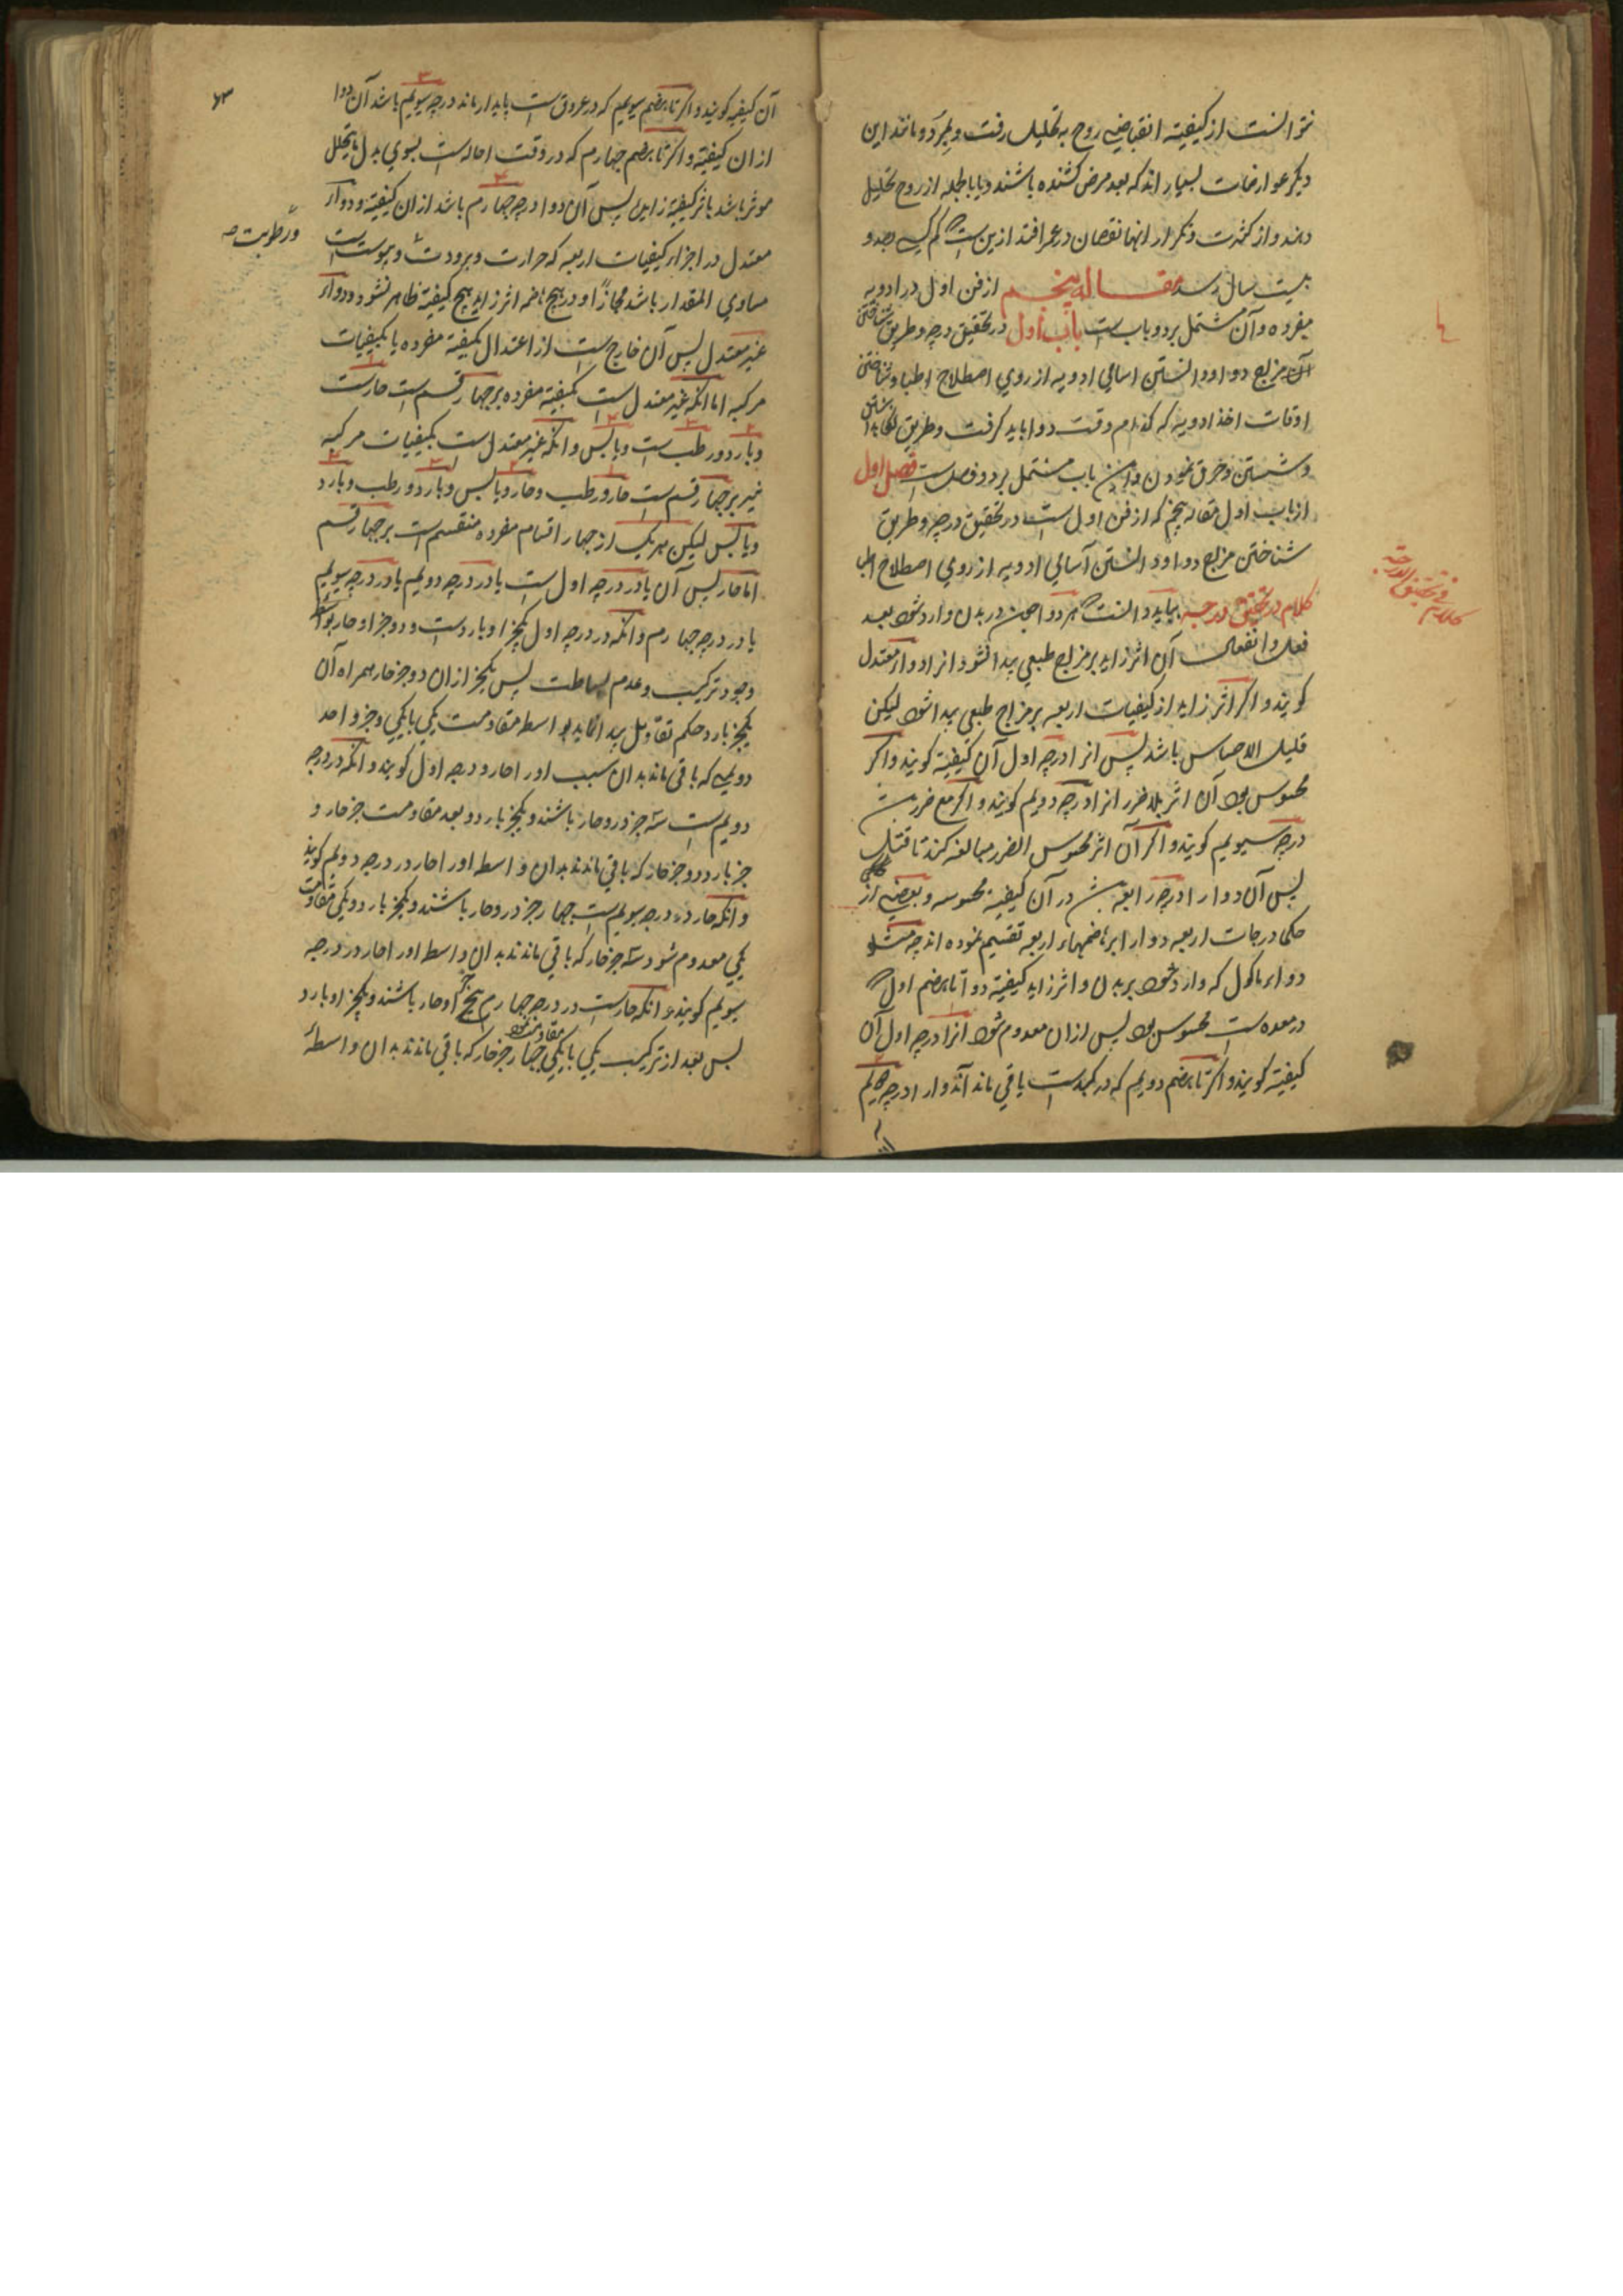 نتوانست از کیفیته انقباضی روح به تحلیل رفت و بمرد و مانند این
دیکر عوارضات بسیار اند که بعد مرض کشنده باشند و یا بالجمله از روح تحلیل
دهند و از کثرت و تکرار انها نقصان در عمر افتد ازین است که کم کسی بصد و
بیست سال رسد مقاله پنجم از فن اول در ادویه
مفرده و آن مشتمل بر دو باب ست باب اول در تحقیق درجه و طریق شناختن
مزاج دوا و دانستن اسامی ادویه از روی اصطلاح اطبا و شناختن
اوقات اخذ ادویه که کدام وقت دوا باید کرفت و طریق
و شستن و حرق نمودن و این باب مشتمل بر دو فصل ست فصل اول
از باب اول مقاله پنجم که از فن اول است در تحقیق درجه و طریق
شناختن مزاج دوا و دانستن اسامی ادویه از روی اصطلاح اطبا
کلام در تحقیق درجه بباید دانست که هر دوا چون در بدن وارد شود بعد
فعل و انفعال آن اثر زاید بر مزاج طبعی پیدا نشود انرا دواء معتدل
کویند و اکر اثر زاید از کیفیات اربعه بر مزاج طبعی پیدا شود لیکن
قلیل الاحساس باشد پس انرا درجه اول آن کیفیته کویند و اکر
محسوس بود آن اثر بلا ضرر انرا درجه دویم کویند و اکر مع ضرر
درجه سیویم کویند و اکر آن اثر محسوس الضرر مبالغه کند تا قتل
پس آن دوا را درجه رابعه در آن کیفیته محسوسه و بعضی از
حکما درجات اربعه دوا را بر هضمهاء اربعه تقسیم نموده اند چه مثلا
دواء ماکول که وارد شود بر بدن و اثر زاید کیفیته دوا تا هضم اول که
در معده ست محسوس بود پس ازان معدوم شود انرا درجه اول آن
کیفیته کویند و اکر تا هضم دویم که در کبدست باقی ماند آن دوا را درجه دویم
کلام
فی تحقیق الدرجته
۶۳
آن کیفیه کویند و اکر تا هضم سیویم که در عروق است پایدار ماند درجه سیویم باشد آن دوا
ازان کیفیته و اکر تا هضم چهارم که در وقت احاله است بسوی بدل ما یتحلل
موثر باشد باثر کیفیته زاید پس آن دوا درجه چهارم باشد ازان کیفیته و دواء
معتدل در اجزاء کیفیات اربعه که حرارت و برودت و یبوست است
و رطوبت صہ
مساوی المقدار باشد مجازاً او در هیچ هضمه اثر زاید هیچ کیفیته ظاهر نشود و دواء
غیر معتدل پس آن خارج ست از اعتدال بکیفیته مفرده یا بکیفیات
مرکبه اما انکه غیر معتدل است بکیفیته مفرده بر چهار قسم است حارست
و بارد و رطب ست و یابس و انکه غیر معتدل ست بکیفیات مرکبه
نیز بر چهار قسم ست حار و رطب و حار و یابس و بارد و رطب و بارد
و یابس لیکن هر یک از چهار اقسام مفرده منقسم است بر چهار قسم
اما حار پس آن یا در درجه اول ست یا در درجه دویم یا در درجه سیویم
یا در درجه چهارم و انکه در درجه اول یکجز او باردست و دو جز او حار بواسطه
وجود ترکیب و عدم بساطت پس یکجز ازان دو جز حار همراه آن
یکجز بارد حکم تقاویل پیدا نماید بواسطه مقاومت یکی با یکی و جز واحد
دویمی که باقی ماند بدان سبب اورا حار و درجه اول کویند و انکه در درجه
دویم ست سه جز درو حار باشند و یکجز بارد و بعد مقاومت جز حار و
جز بارد دو جز حار که باقی ماندند بدان واسطه اورا حار در درجه دویم کویند
و انکه حار در درجه سیویم ست چهار جز درو حار باشند و یکجز بارد و یکی بمقاومت
یکی معدوم شود سه جز حار که باقی ماندند بدان واسطه اورا حار در درجه
سیویم کویند و انکه حارست در درجه چهارم پنج جز او حار باشند و یکجز او بارد
پس بعد از ترکیب یکی با یکی مقاومت چهار جز حار که باقی ماندند بدان واسطه